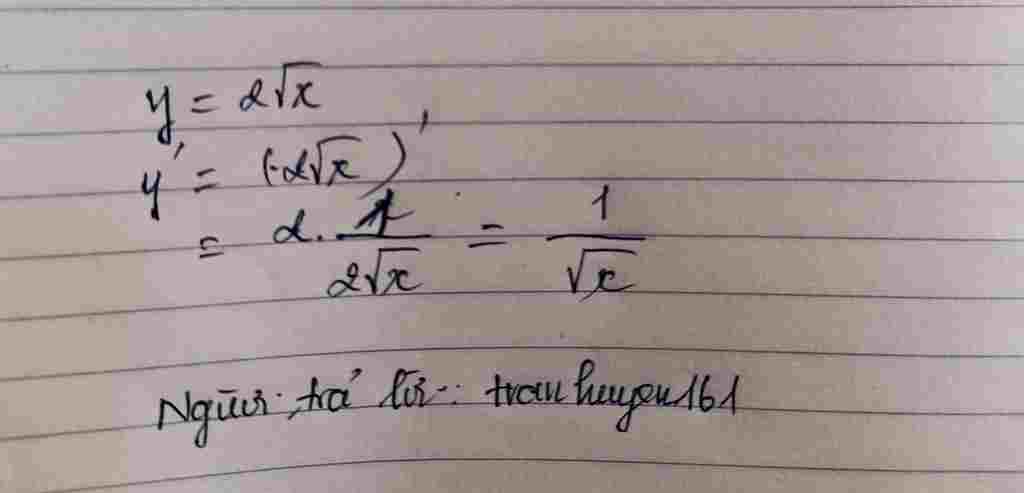 y = 2√x
y' = (2√x)'
= 2. 1/2√x = 1/√x
Người trả lời: tranhuyen161